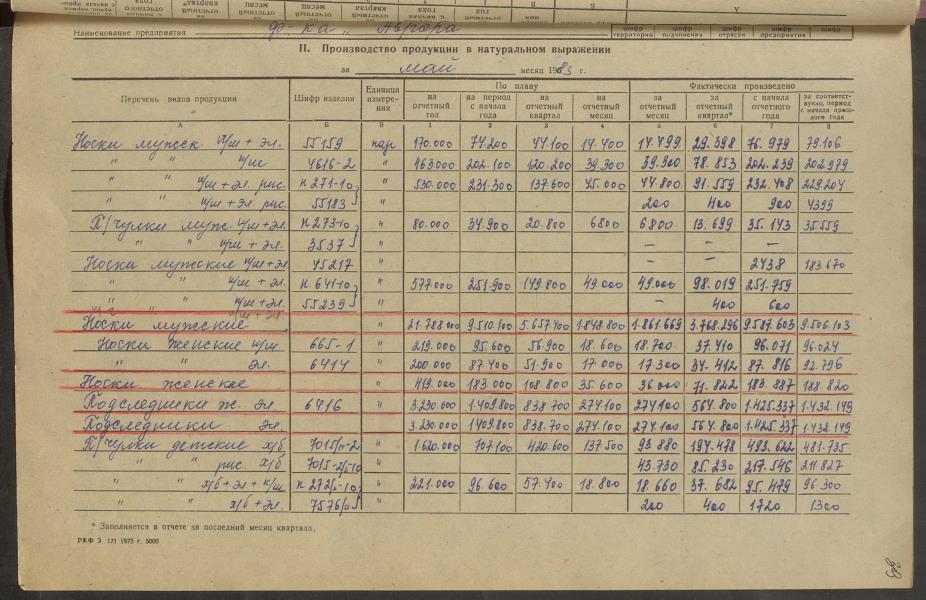 Наименование предприятия ф-ка „Аврора
шифр территории шифр подчинения шифр отрасли шифр предприятия шифр
II. Производство продукции в натуральном выражении
за май месяц 1983 г.
Перечень видов продукции Шифр изделия Единица измере-ния По плану Фактически произведено
на отчетный год на период с начала года на отчетный квартал на отчетный месяц за отчетный месяц за отчетный квартал* с начала отчетного года за соответст-вующ. период с начала прош-лого года
А Б В 1 2 3 4 5 6 7 8
Носки мужск. ш/ш + эл. 55159 пар 170.000 74.200 44.100 14.400 14.499 29.398 76.979 79.106
" " ч/ш 4616-2 " 463.000 202.100 120.200 39.300 39.900 78.853 202.239 202.979
" " ч/ш + эл. рис. н 271-10 " 530.000 231.300 137.600 45.000 44.800 91.559 232.408 229.204
" " ч/ш + эл. рис. 55183 " 200 400 900 4399
П/чулки муж. ч/ш+эл. н 273-10 " 80.000 34.900 20.800 6800 6800 13.699 35.143 35.559
" " ч/ш + эл. 3537 " — — —
Носки мужские ч/ш+эл. 45217 " — — 2438 183.670
" " ч/ш + эл. н 641-10 " 577.000 251.900 149.800 49.000 49.000 98.019 251.759
" " ч/ш+эл. 55239 " — 400 600
Носки мужские " 21.788.000 9.510.100 5.657.400 1.848.800 1.861.669 3.768.296 9.587.603 9.506.103
Носки женские ч/ш 665-1 " 219.000 95.600 56.900 18.600 18.700 37.410 96.071 96.024
" " эл. 6414 " 200.000 87.400 51.900 17.000 17.300 34.412 87.816 92.796
Носки женские " 419.000 183.000 108.800 35.600 36.000 71.822 183.887 188.820
Подследники ж. эл. 6416 " 3.230.000 1.409.800 838.700 274.100 274.100 564.800 1.425.337 1.432.149
Подследники эл. " 3.230.000 1.409.800 838.700 274.100 274.100 564.800 1.425.337 1.432.149
П/чулки детские х/б 7015/п-2 " 1.620.000 707.100 420.600 137.500 93.880 194.478 493.622 481.735
" " рис. х/б " 43.730 85.230 217.546 211.827
" " х/б+эл + к/ш " 221.000 96.600 57.400 18.800 18.660 37.682 95.479 96.300
" " х/б + эл. " 200 400 1720 1300
* Заполняется в отчете за последний месяц квартала.
РКФ З. 171 1975 г. 5000